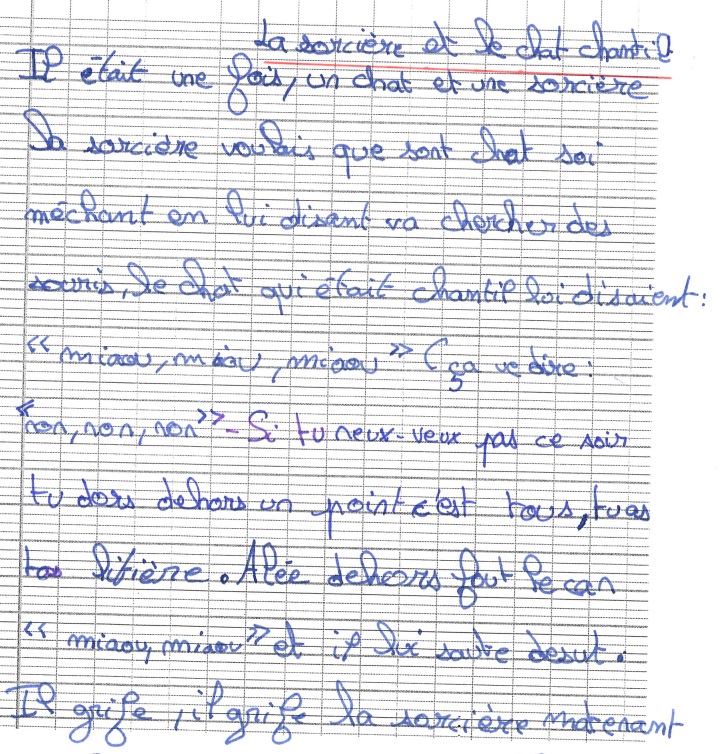 La sorcière et le chat chantil
Il était une fois, un chat et une sorcière
La sorcière voulais que sont chat soi
méchant en lui disant va chercher des
souris, le chat qui était chantil loi disaient :
« miaou, miaou, miaou » (ça ve dire :
"non, non, non" - Si tu neux-veux pas ce soir
tu dors dehors un point c'est tous, tu as
tas litière. Alée deheors fout le can
« miaou, miaou » et il lui saute desut.
Il grife, il grife la sorcière matenant